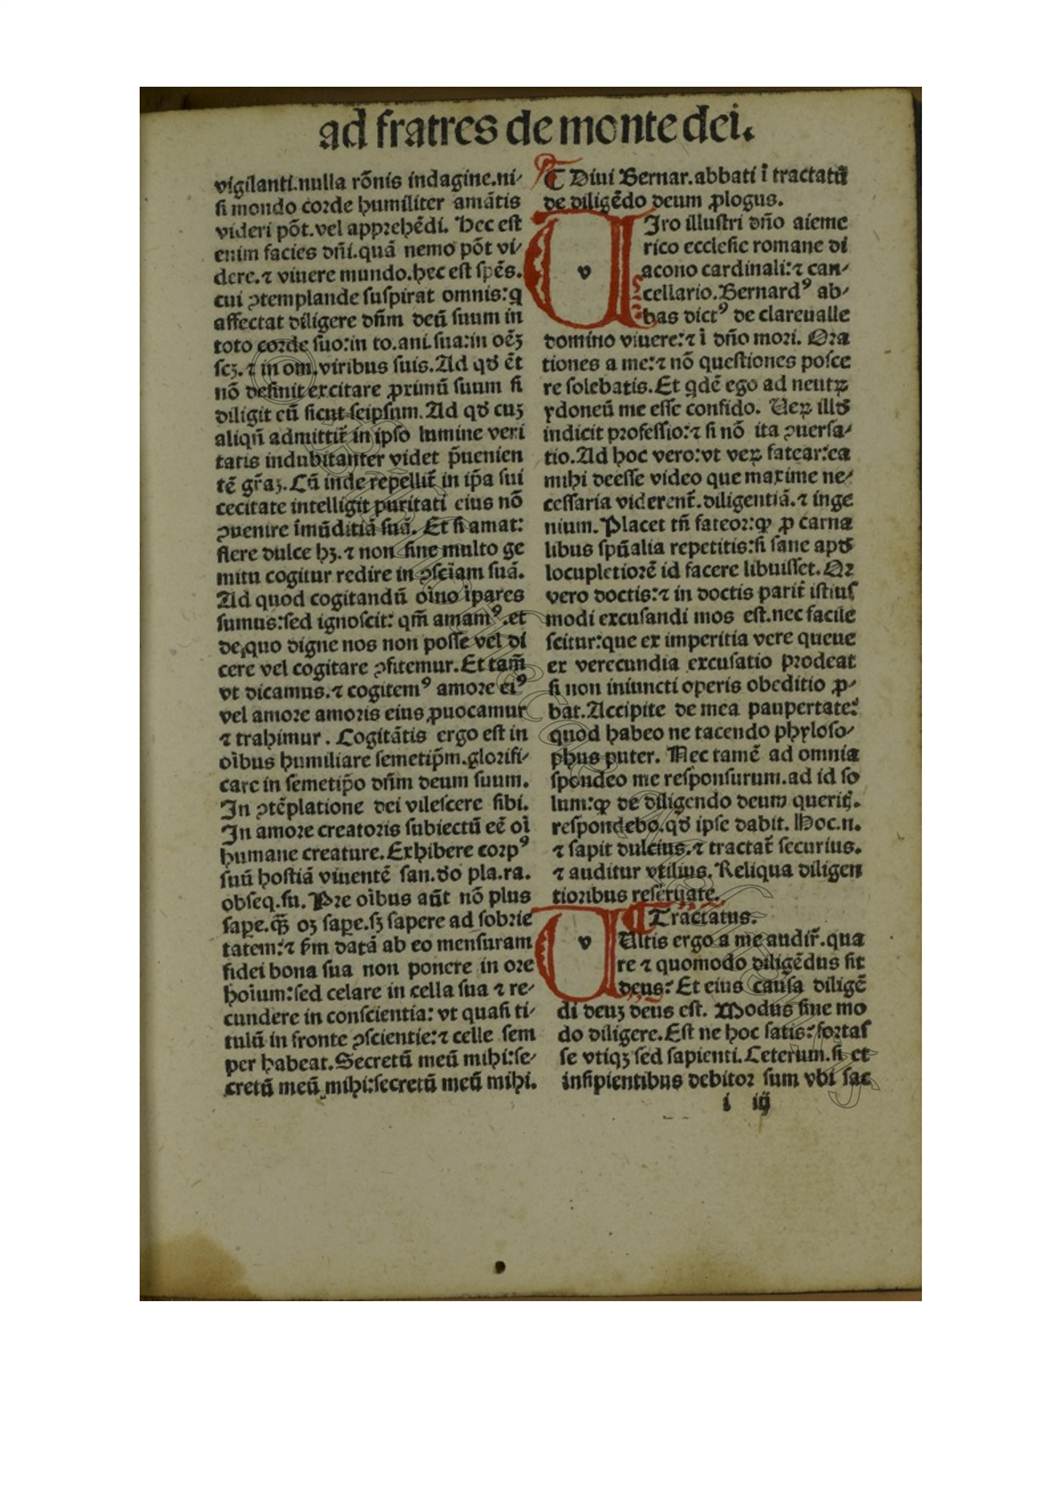 ad fratres de monte dei.
vigilanti.nulla rōnis indagine.ni-
si mondo corde humiliter amātis
videri pōt.vel apprehēdi. Hec est
enim facies dn̄i.quā nemo pōt vi-
dere.⁊ viuere mundo.hec est spēs.
cui ꝯtemplande suspirat omnis:q̄
affectat diligere dn̄m deū suum in
toto corde suo:in to.ani.sua:in oēꝫ
scꝫ.⁊ in om.viribus suis.Ad qd̄ ēt
nō definit excitare ꝓximū suum si
diligit eū sicut seipsum.Ad qd̄ cuꝫ
aliqn̄ admittit̄ in ipso lumine veri
tatis indubitanter videt p̄uenien
tē gr̄aꝫ.Cū inde repellit̄ in ip̄a sui
cecitate intelligit puritati eius nō
ꝯuenire īmūditiā suā. Et si amat:
flere dulce hꝫ.⁊ non sine multo ge
mitu cogitur redire in ꝯsciam suā.
Ad quod cogitandū oīno īpares
sumus:sed ignoscit: qm̄ amamꝰ.et
de quo digne nos non posse vel di
cere vel cogitare ꝯfitemur.Et tam̄
vt dicamus.⁊ cogitemꝰ amore eiꝰ
vel amore amoris eius ꝓuocamur
⁊ trahimur. Cogitātis ergo est in
oībus humiliare semetip̄m.glorifi-
care in semetip̄o dn̄m deum suum.
In ꝯtēplatione dei vilescere sibi.
In amore creatoris subiectū eē oī
humane creature.Exhibere corpꝰ
suū hostiā viuentē san.do pla.ra.
obseq.su. Pre oībus aūt nō plus
sape.q̄ꝫ oꝫ sape.sꝫ sapere ad sobrie
tatem:⁊ fm̄ datā ab eo mensuram
fidei bona sua non ponere in ore
hoīum:sed celare in cella sua ⁊ re-
cundere in conscientia: vt quasi ti-
tulū in fronte ꝯscientie:⁊ celle sem
per habeat.Secretū meū mihi:se-
cretū meū mihi:secretū meū mihi.
¶ Diui Bernar.abbati ī tractatū
de diligēdo deum ꝓlogus.
v Iro illustri dn̄o aieme
rico ecclesie romane di
acono cardinali:⁊ can-
cellario.Bernardꝰ ab-
bas dictꝰ de clareualle
domino viuere:⁊ ī dn̄o mori. Ora
tiones a me:⁊ nō questiones posce
re solebatis.Et qdē ego ad neutꝝ
ydoneū me esse confido. Ueꝝ illd̄
indicit professio:⁊ si nō ita ꝯuersa-
tio.Ad hoc vero:vt veꝝ fatear:ea
mihi deesse video que maxime ne-
cessaria viderent̄.diligentiā.⁊ inge
nium.Placet tn̄ fateor:ꝙ ꝓ carna
libus spūalia repetitis:si sane apd̄
locupletiorē id facere libuisset.Qꝛ
vero doctis:⁊ in doctis parit̄ istius
modi excusandi mos est.nec facile
scitur:que ex imperitia vere queue
ex verecundia excusatio prodeat
si non iniuncti operis obeditio ꝓ-
bat.Accipite de mea paupertate:
quod habeo ne tacendo phyloso-
phus puter. Nec tamē ad omnia
spondeo me responsurum.ad id so
lum:ꝙ de diligendo deum querit̄.
respondebo.qd̄ ipse dabit. Hoc.n.
⁊ sapit dulcius.⁊ tractat̄ securius.
⁊ auditur vtilius. Reliqua diligen
tioribus reseruate.
¶ Tractatus.
v Ultis ergo a me audir̄.qua
re ⁊ quomodo diligēdus sit
deus? Et eius causa diligē
di deuꝫ deus est. Modus sine mo
do diligere.Est ne hoc satis?fortas
se vtiqꝫ sed sapienti.Ceterum.si et
insipientibus debitor sum vbi sac
i iij